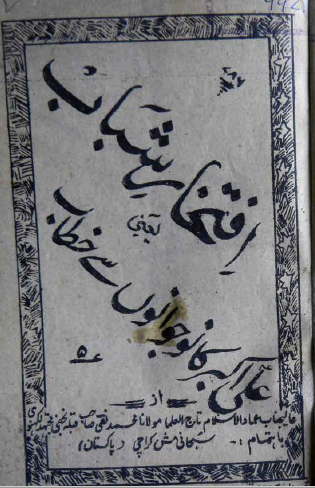 افتخارِ شباب
یعنی
علی اکبر کا نوجوانوں سے خطاب
از
عالیجناب عماد الاسلام تاج العلماء مولانا محمد تقی صاحب قبلہ نجفی مجتہد
باہتمام :۔ سبحانی مشن کراچی (پاکستان)